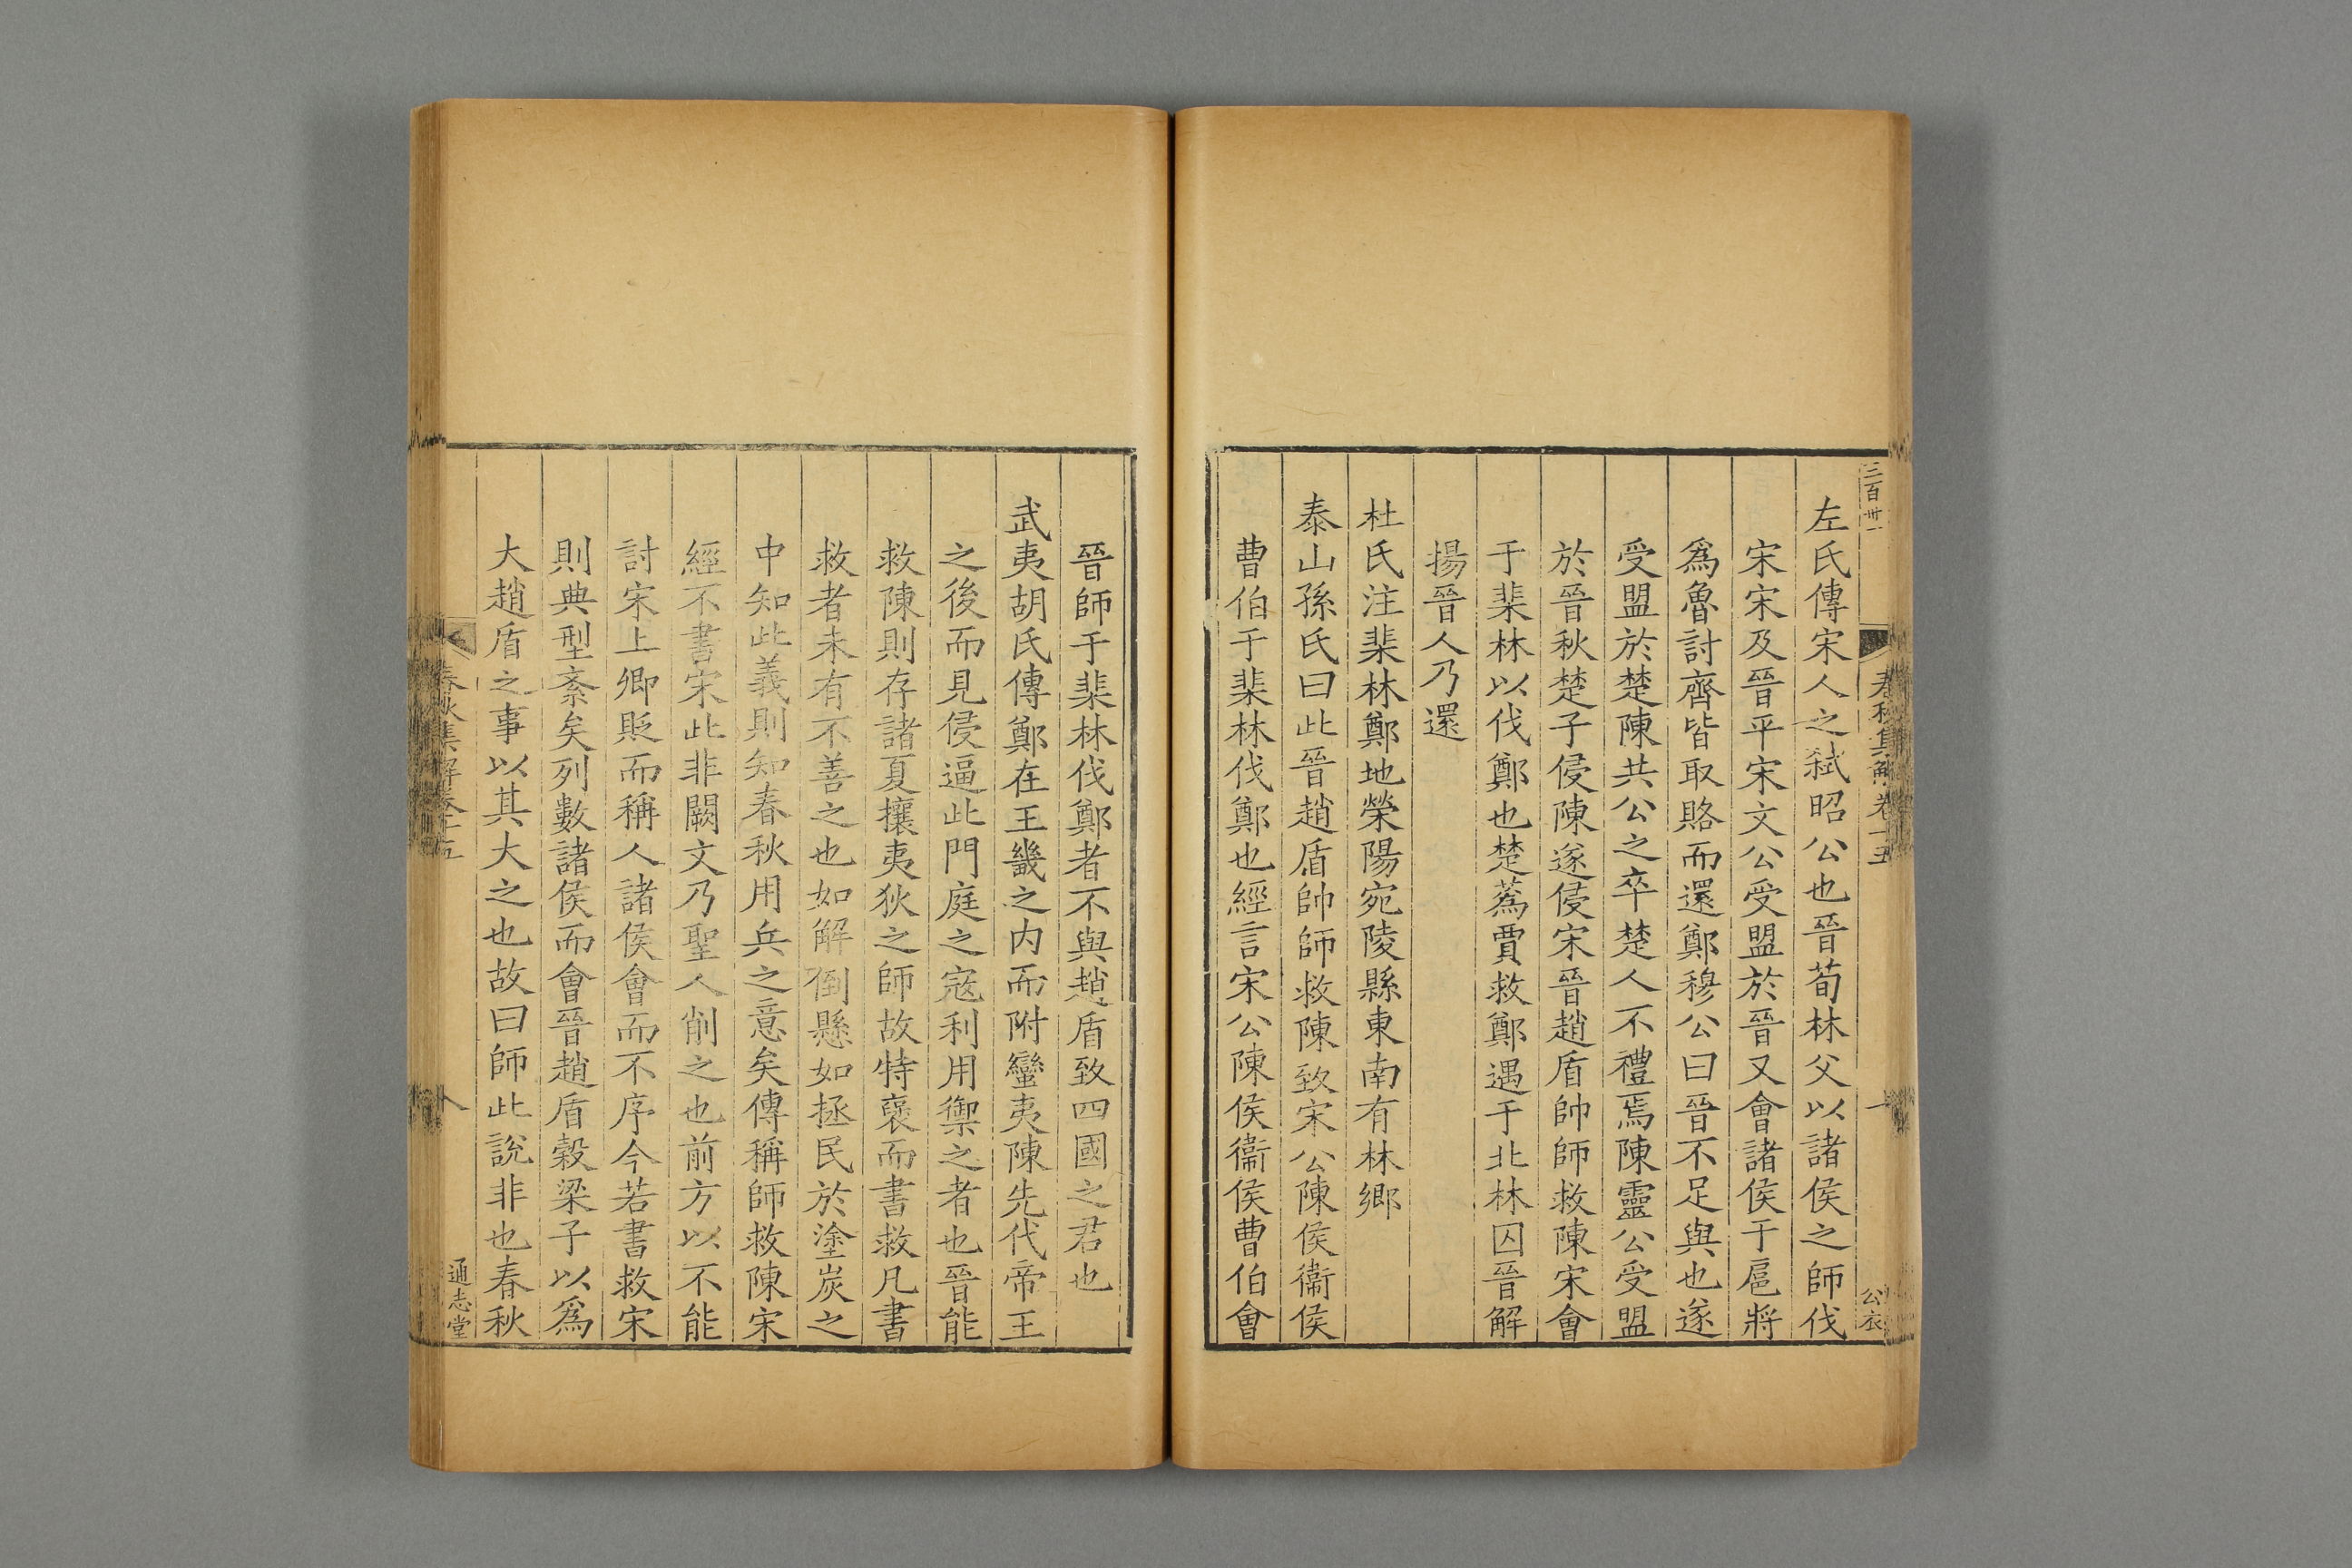 三百卅一
春秋集解卷十五
公衣
左氏傳宋人之弑昭公也晉荀林父以諸侯之師伐
宋宋及晉平宋文公受盟於晉又會諸侯于扈將
爲魯討齊皆取賂而還鄭穆公曰晉不足與也遂
受盟於楚陳共公之卒楚人不禮焉陳靈公受盟
於晉秋楚子侵陳遂侵宋晉趙盾帥師救陳宋會
于棐林以伐鄭也楚蒍賈救鄭遇于北林囚晉解
揚晉人乃還
杜氏注棐林鄭地滎陽宛陵縣東南有林鄉
泰山孫氏曰此晉趙盾帥師救陳致宋公陳侯衞侯
曹伯于棐林伐鄭也經言宋公陳侯衞侯曹伯會
晉師于棐林伐鄭者不與趙盾致四國之君也
武夷胡氏傳鄭在王畿之内而附蠻夷陳先代帝王
之後而見侵逼此門庭之寇利用禦之者也晉能
救陳則存諸夏攘夷狄之師故特襃而書救凡書
救者未有不善之也如解倒懸如拯民於塗炭之
中知此義則知春秋用兵之意矣傳稱師救陳宋
經不書宋此非闕文乃聖人削之也前方以不能
討宋上卿貶而稱人諸侯會而不序今若書救宋
則典型紊矣列數諸侯而會晉趙盾榖梁子以爲
大趙盾之事以其大之也故曰師此說非也春秋
春秋集解卷十五
八
通志堂